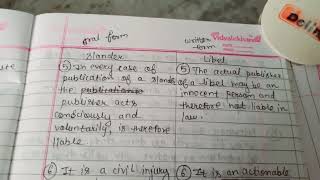 oral form
written form
Vidyalekhan
Slander
Libel
⑤ In every case of
publication of a slander
the publication
publisher acts
consciously and
voluntarily, is therefore
liable
⑤ The actual publisher
of a libel may be an
innocent person and
therefore not liable in
law.
⑥ It is a civil injury
⑥ It is an actionable